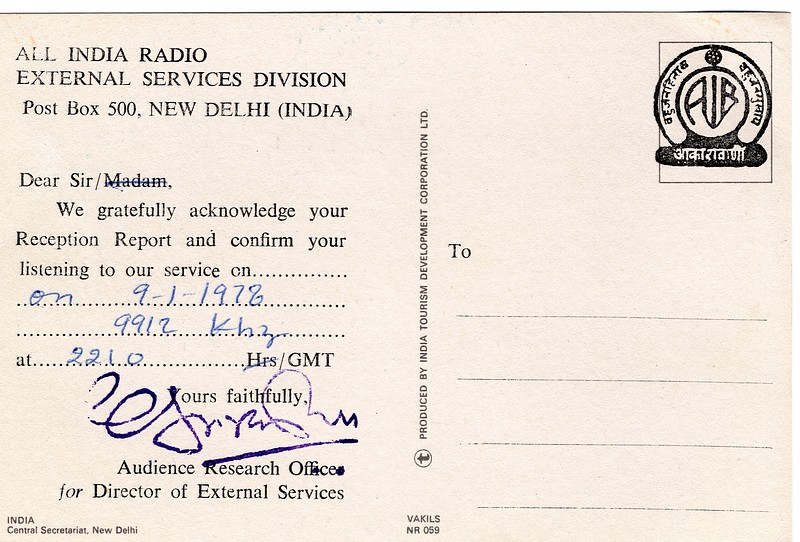 ALL INDIA RADIO
EXTERNAL SERVICES DIVISION
Post Box 500, NEW DELHI (INDIA)
Dear Sir/Madam,
We gratefully acknowledge your
Reception Report and confirm your
listening to our service on...............
on 9-1-1978
9912 Khz
at.....2210...............Hrs/GMT
Yours faithfully,
Audience Research Officer
for Director of External Services
INDIA
Central Secretariat, New Delhi
PRODUCED BY INDIA TOURISM DEVELOPMENT CORPORATION LTD.
VAKILS
NR 059
बहुजनहिताय बहुजनसुखाय
AIR
आकाशवाणी
To